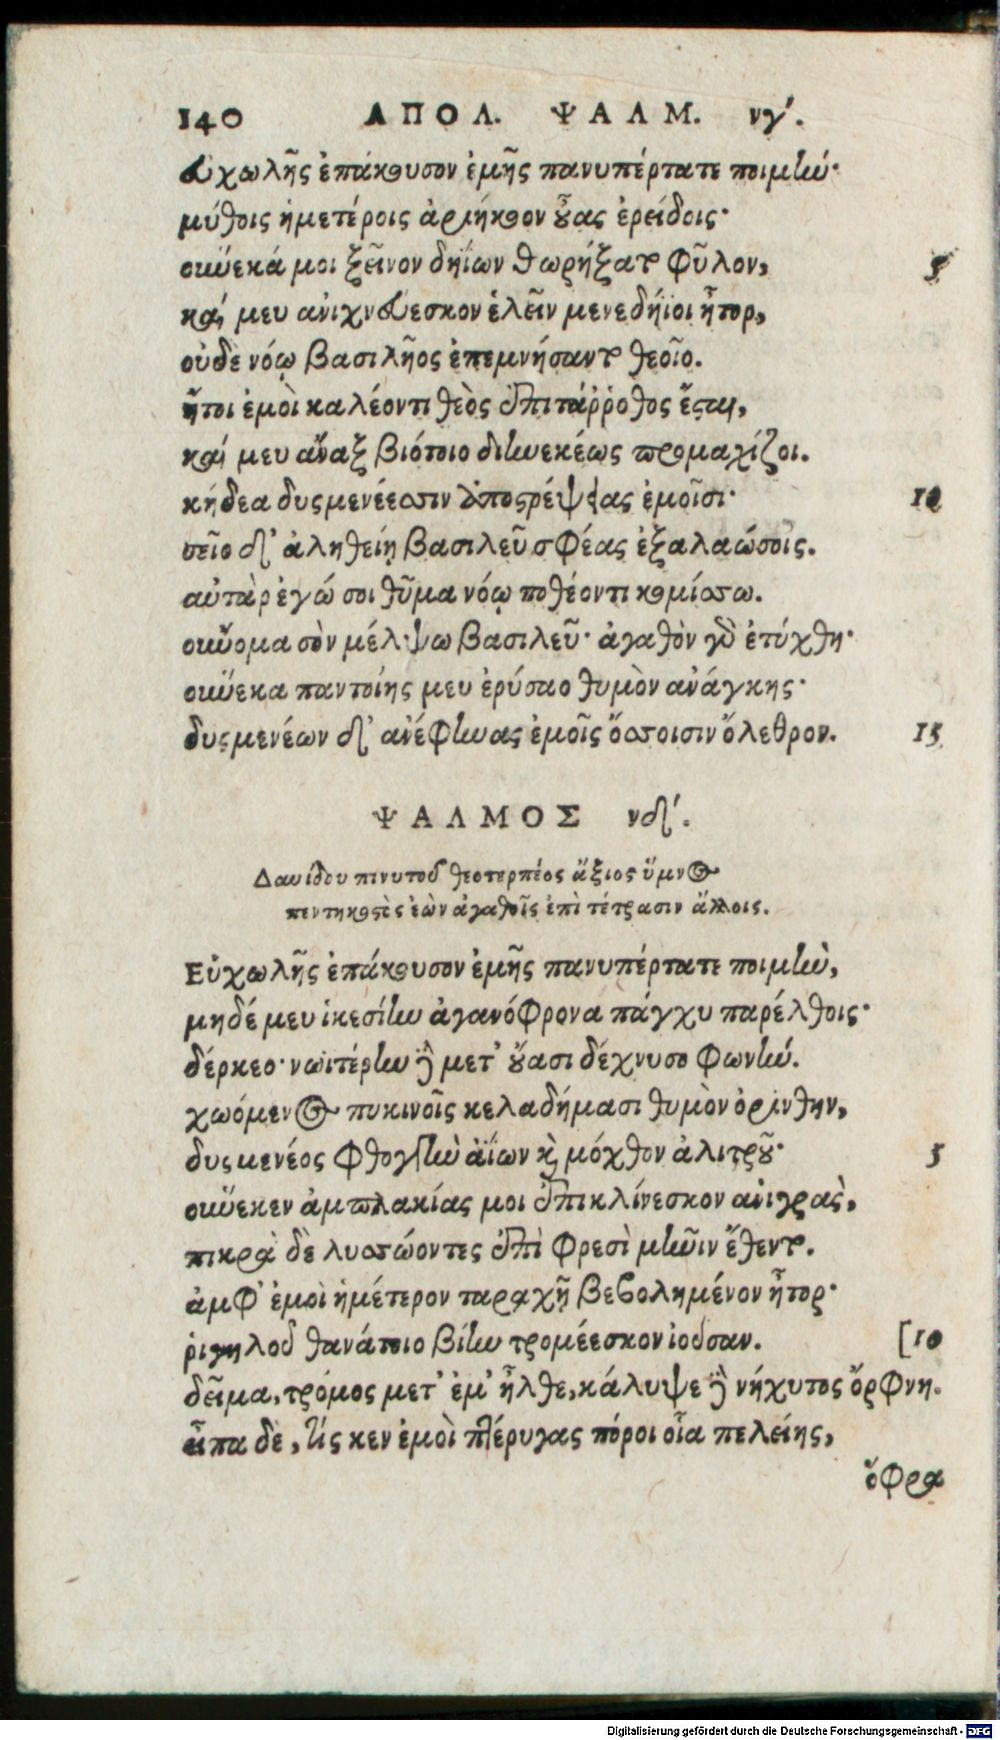 140 ΑΠΟΛ. ΨΑΛΜ. νγʹ.
εὐχωλῆς ἐπάκουσον ἐμῆς πανυπέρτατε ποιμὴν·
μύθοις ἡμετέροις ἀρήκοον οὖας ἐρείδοις·
οὕνεκά μοι ξεῖνον δηΐων θωρήξατο φῦλον, 5
καί μευ ἀνιχνεύεσκον ἑλεῖν μενεδήϊοι ἦτορ,
οὐδὲ νόῳ βασιλῆος ἐπεμνήσαντο θεοῖο.
ἤτοι ἐμοὶ καλέοντι θεὸς ἐπιτάῤῥοθος ἔσται,
καί μευ ἄναξ βιότοιο διηνεκέως προμαχίζοι.
κήδεα δυσμενέεσσιν ὑποστρέψειας ἐμοῖσι· 10
σεῖο δ' ἀληθείῃ βασιλεῦ σφέας ἐξαλαώσοις.
αὐτὰρ ἐγώ σοι θῦμα νόῳ ποθέοντι κομίσσω.
οὔνομα σὸν μέλψω βασιλεῦ· ἀγαθὸν γὰρ ἐτύχθη·
οὕνεκα παντοίης μευ ἐρύσαο θυμὸν ἀνάγκης·
δυσμενέων δ' ἀνέφηνας ἐμοῖς ὄσσοισιν ὄλεθρον. 15
ΨΑΛΜΟΣ νδʹ.
Δαυίδου πινυτοῦ θεοτερπέος ἄξιος ὕμνος
πεντηκοστὸς ἐὼν ἀγαθοῖς ἐπὶ τέτρασιν ἄλλοις.
Εὐχωλῆς ἐπάκουσον ἐμῆς πανυπέρτατε ποιμὴν,
μηδέ μευ ἱκεσίην ἀγανόφρονα πάγχυ παρέλθοις·
δέρκεο· νωϊτέρην καὶ μετ' οὔασι δέχνυσο φωνήν.
χωόμενος πυκινοῖς κελαδήμασι θυμὸν ὀρίνθην,
δυσμενέος φθογγὴν ἀΐων καὶ μόχθον ἀλιτροῦ· 5
οὕνεκεν ἀμπλακίας μοι ἐπικλίνεσκον ἀνιγρὰς,
πικρὰ δὲ λυσσώοντες ἐπὶ φρεσὶ μῆνιν ἔθεντο.
ἀμφ' ἐμοὶ ἡμέτερον ταραχῇ βεβολημένον ἦτορ·
ῥιγηλοῦ θανάτοιο βίην τρομέεσκον ἰοῦσαν. [10
δεῖμα, τρόμος μετ' ἔμ' ἦλθε, κάλυψε καὶ νήχυτος ὄρφνη.
εἶπα δὲ, τίς κεν ἐμοὶ πτέρυγας πόροι οἷα πελείης,
ὄφρα
Digitalisierung gefördert durch die Deutsche Forschungsgemeinschaft - DFG